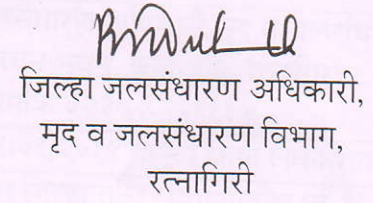 जिल्हा जलसंधारण अधिकारी,
मृद व जलसंधारण विभाग,
रत्नागिरी